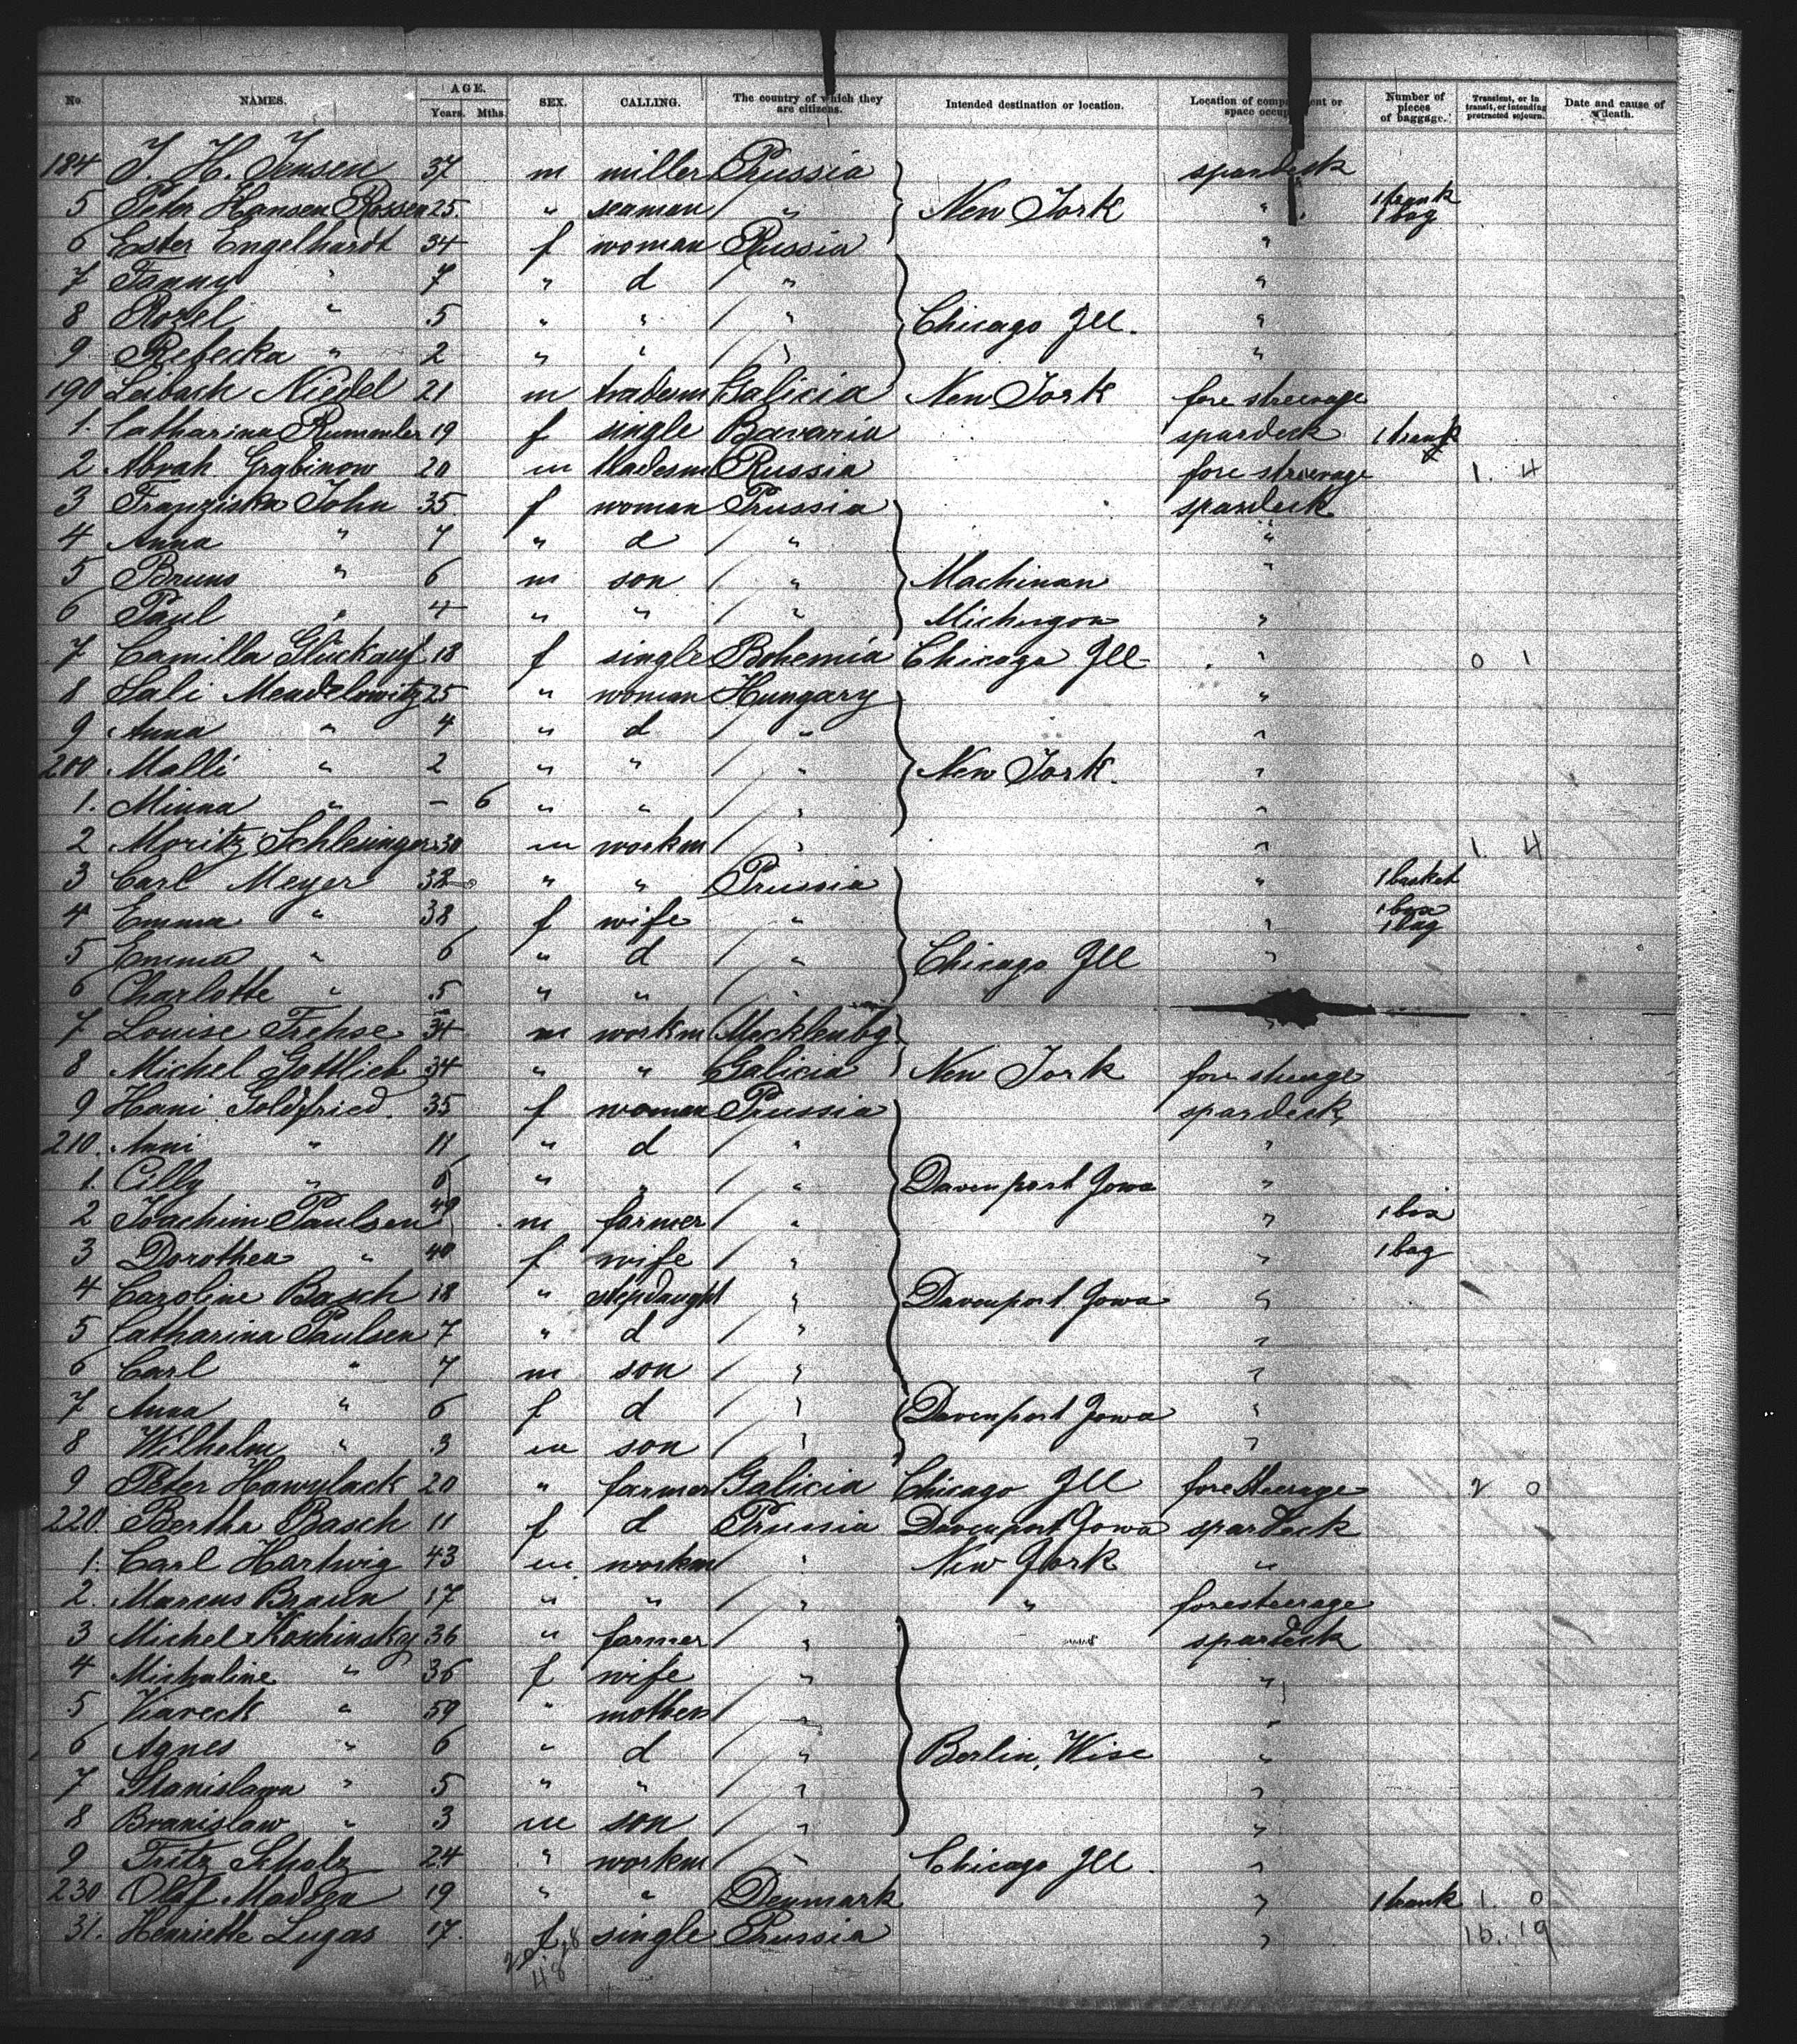 No. NAMES. AGE. Years. Mths. SEX. CALLING. The country of which they are citizens. Intended destination or location. Location of compartment or space occupied Number of pieces of baggage. Transient, or in transit, or intending protracted sojourn. Date and cause of death.
184 J. H. Jensen 37 m miller Prussia spardeck
5 Peter Hansen Rossen 25 " seaman " New York " 1 trunk 1 bag
6 Ester Engelhardt 34 f woman Russia "
7 Fanny " 7 " d " "
8 Rozel " 5 " " " Chicago Ill. "
9 Rebecka " 2 " " " "
190 Leibach Niedel 21 m tradesm Galicia New York fore streerage
1. Catharina Rummler 19 f single Bavaria spardeck 1 trunk
2 Abrah. Grabinow 20 m tradesm Russia fore streerage 1. 4
3 Franziska John 35 f woman Prussia spardeck
4 Anna " 7 " d " "
5 Bruno " 6 m son " Machinan "
6 Paul " 4 " " " Michigon "
7 Camilla Glückauf 18 f single Bohemia Chicago Ill " 0 1
8 Sali Mendelowitz 25 " woman Hungary "
9 Anna " 4 " d " "
200 Malli " 2 " " " New York. "
1. Minna " – 6 " " " "
2 Moritz Schlesinger 30 m workm " " 1. 4
3 Carl Meyer 38 " " Prussia " 1 basket
4 Emma " 38 f wife " " 1 box 1 bag
5 Emma " 6 " d " Chicago Ill "
6 Charlotte " 5 " " "
7 Louise Frehse 34 m workm Mecklenbg "
8 Michel Gottlieb 34 " " Galicia New York fore steerage
9 Hani Goldfried. 35 f woman Prussia spardeck
210. Anni " 11 " d " "
1. Cilly " 6 " " " Davenport Iowa "
2 Joachim Paulsen 49 m farmer " " 1 box
3 Dorothea " 40 f wife " " 1 bag
4 Caroline Basch 18 " stepdaught " Davenport Iowa "
5 Catharina Paulsen 7 " d " "
6 Carl " 7 m son " "
7 Anna " 6 f d " Davenport Iowa "
8 Wilhelm " 3 m son " "
9 Peter Hawrylack 20 " farmer Galicia Chicago Ill fore steerage 2 0
220 Bertha Basch 11 f d Prussia Davenport Iowa spardeck
1. Carl Hartwig 43 m workm " New York "
2. Marcus Braun 17 " " " " foresteerage
3 Michel Kochinsky 36 " farmer " spardeck
4 Michaline " 36 f wife " "
5 " 59 " mother " "
6 Agnes " 6 " d " Berlin, Wisc "
7 Stanislawa " 5 " " " "
8 Branislaw " 3 m son " "
9 Fritz Scholz 24 " workm " Chicago Ill "
230 Olof Madsen 19 " " Denmark " 1 trunk 1. 0
31. Henriette Lugas 17. f single Prussia " 15. 19
48